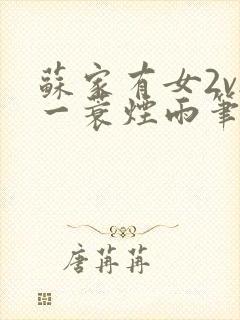 蘇家有女2v
一蓑煙雨筆
唐苒苒